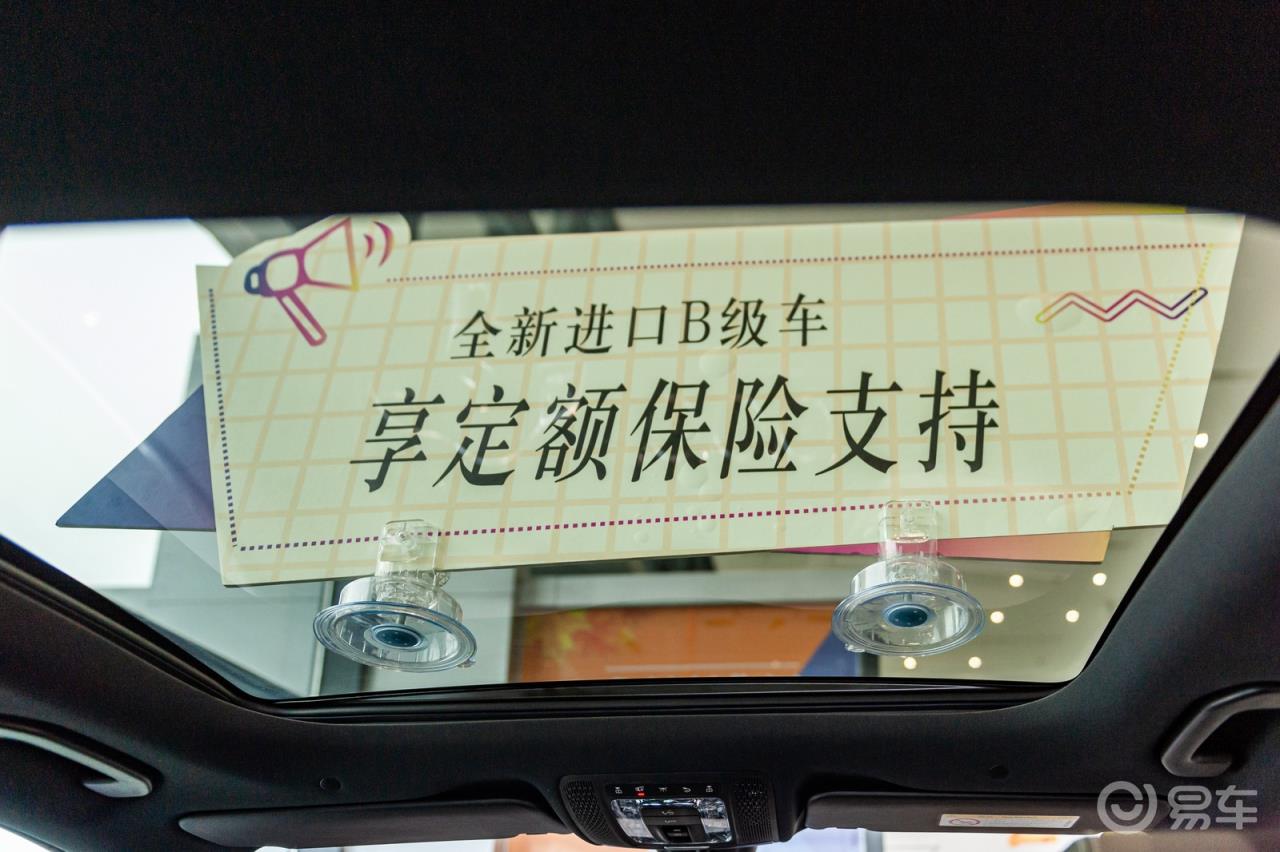 全新进口B级车
享定额保险支持
易车